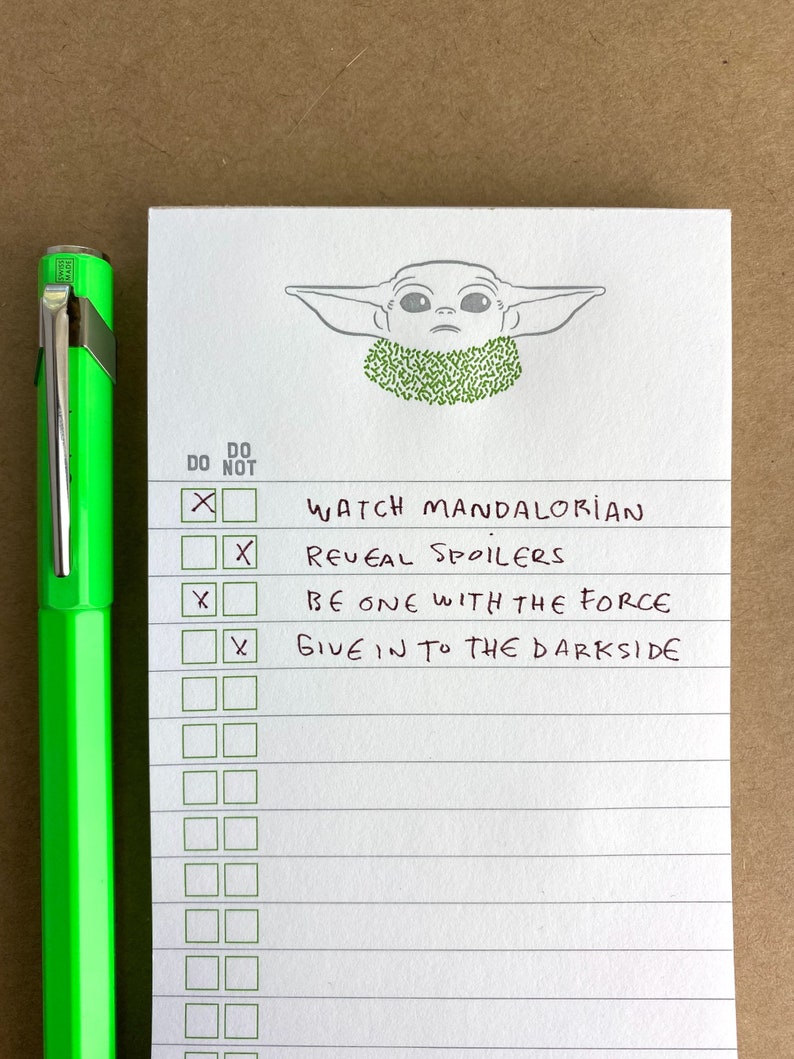 SWISS
MADE
DO
DO
NOT
X WATCH MANDALORIAN
X REVEAL SPOILERS
X BE ONE WITH THE FORCE
X GIVE IN TO THE DARKSIDE